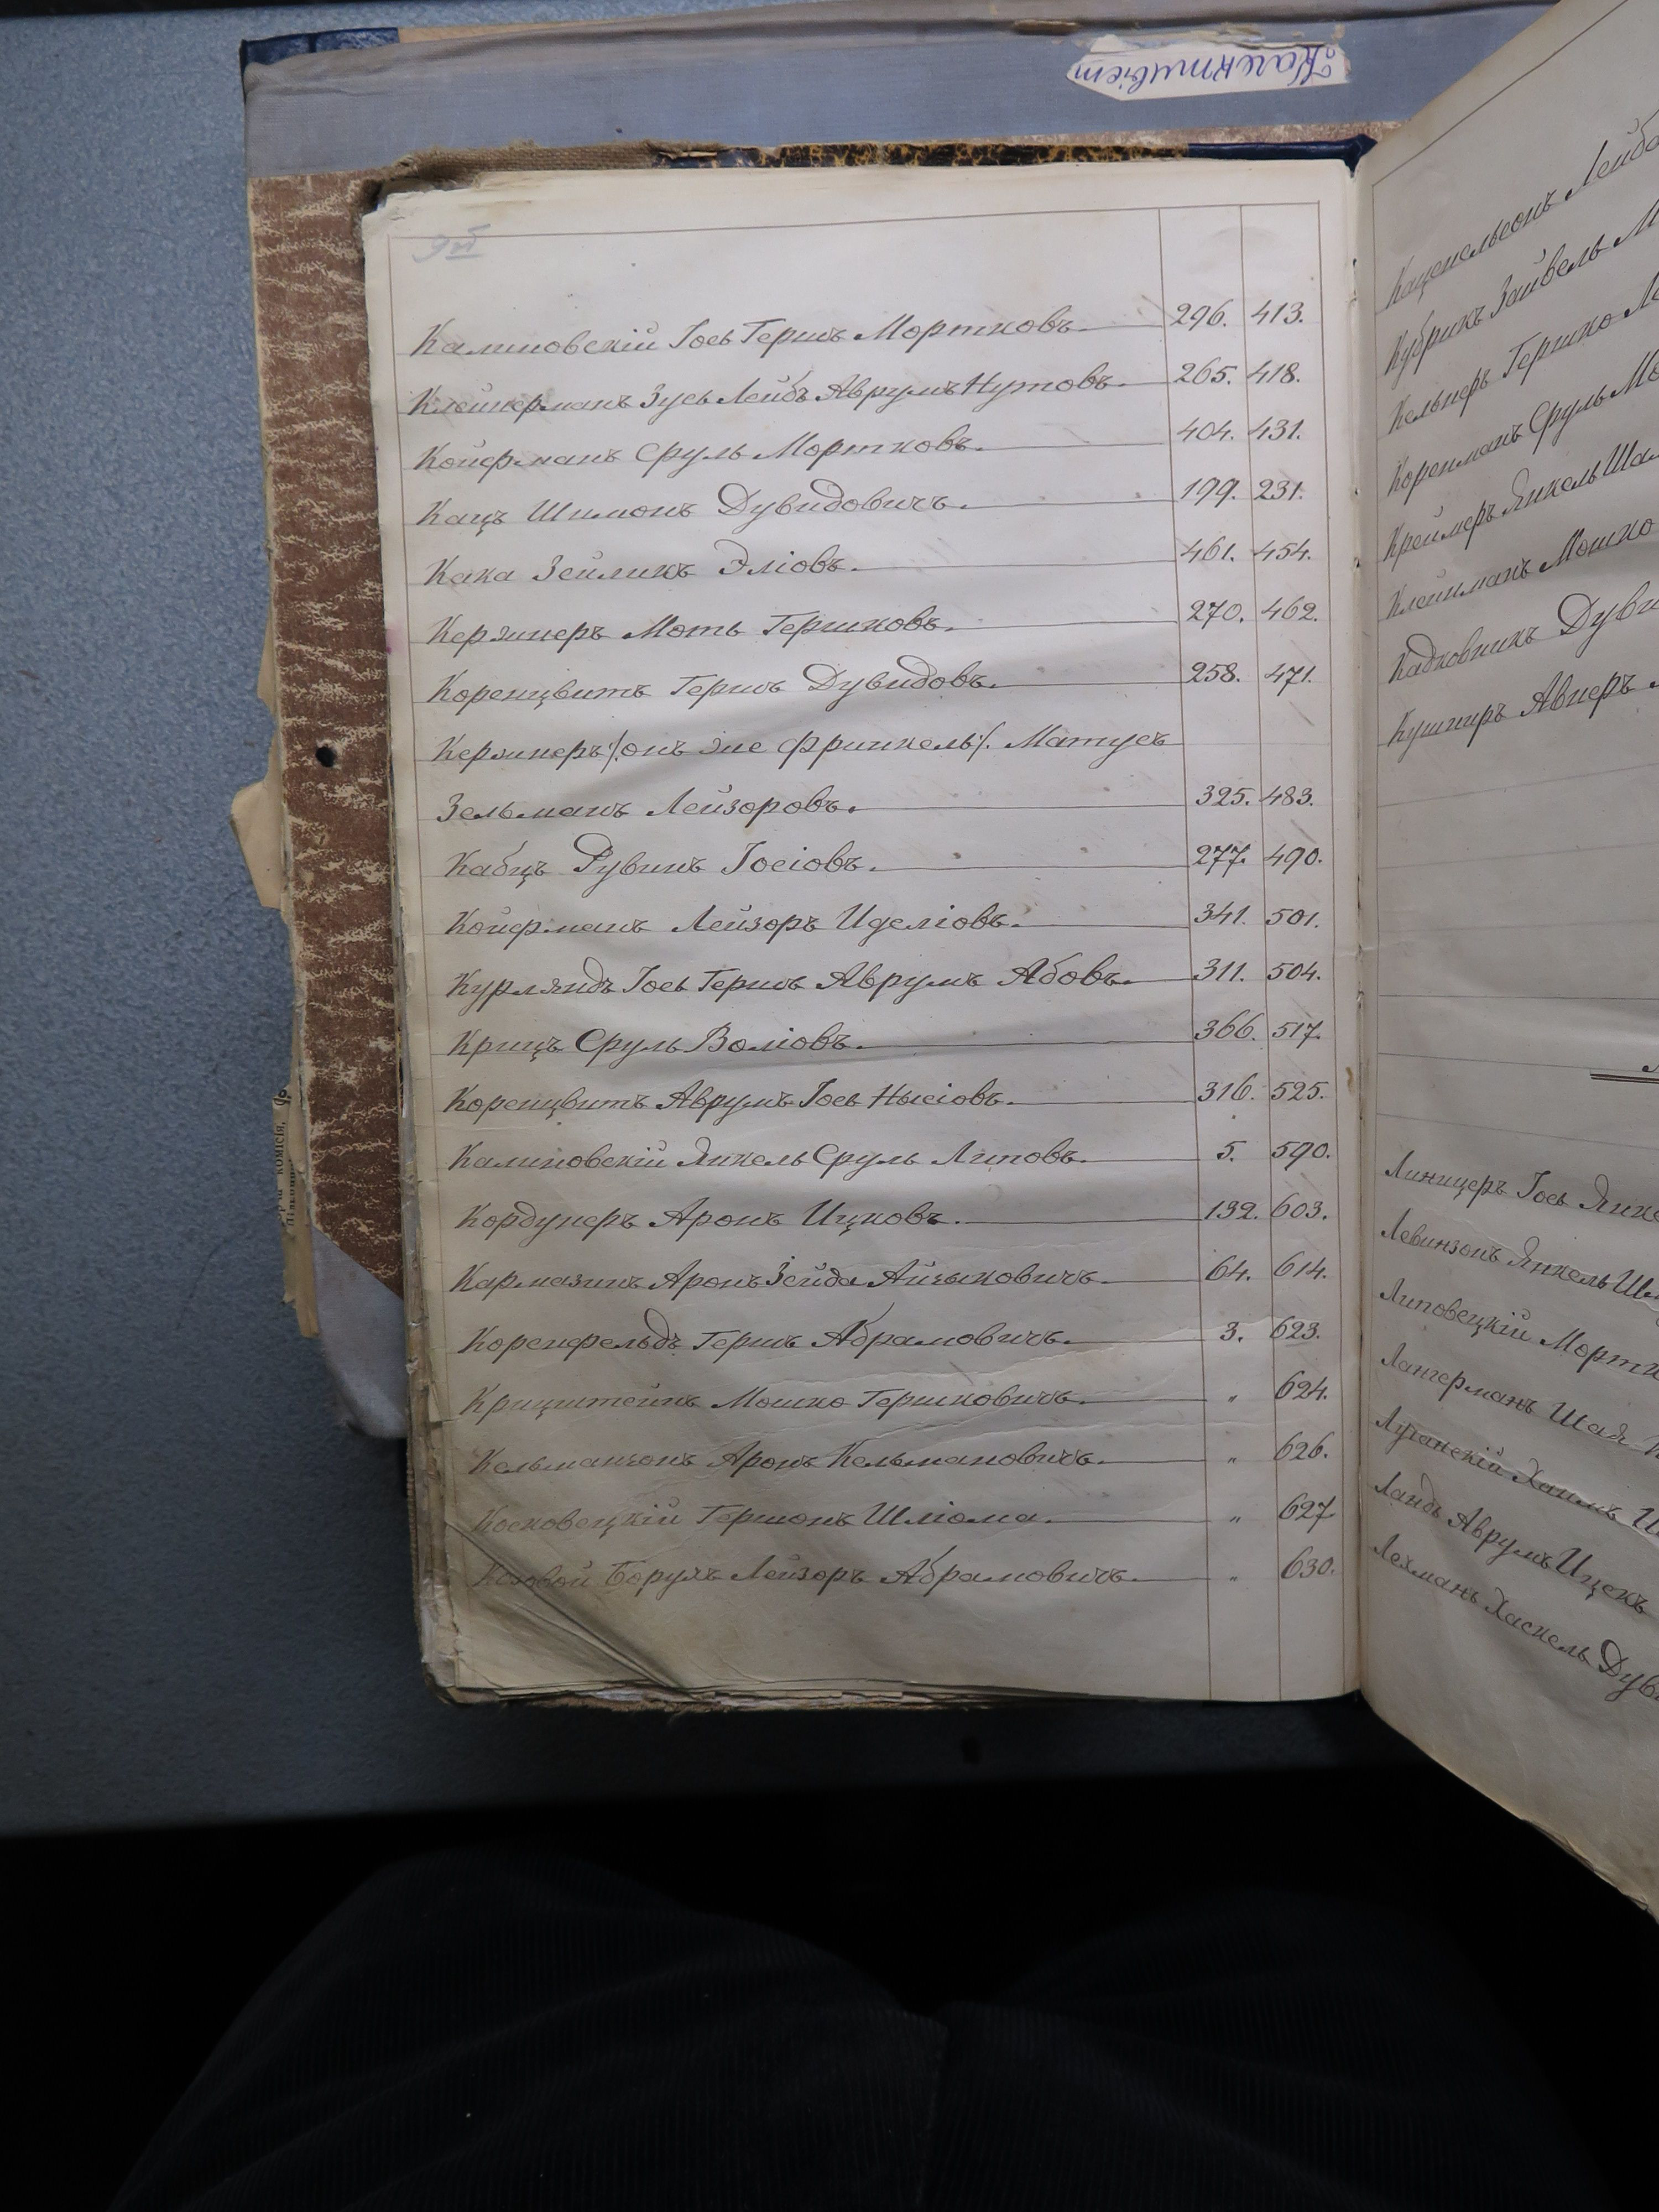 Калективiет
9об
Калиновскій Іось Гершъ Мортковъ 296. 413.
Клейнерманъ Зусь Лейбъ Аврумъ Нутовъ 265. 418.
Койферманъ Сруль Мортковъ. 404. 431.
Кацъ Шимонъ Дувидовичъ. 199. 231.
Кака Зейликъ Эліовъ. 461. 454.
Кержнеръ Моть Гершковъ. 270. 462.
Коренцвитъ Гершъ Дувидовъ. 258. 471.
Кержнеръ /:онъ же Фринкель:/. Матусъ
Зельманъ Лейзоровъ. 325. 483.
Кабцъ Рувинъ Іосіовъ. 277. 490.
Койферманъ Лейзоръ Иделіовъ. 341. 501.
Курляндъ Іось Гершъ Аврумъ Абовъ. 311. 504.
Крицъ Сруль Воліовъ. 366. 517.
Коренцвитъ Аврумъ Іось Нысіовъ. 316. 525.
Калиновскій Янкель Сруль Липовъ. 5. 590.
Кордунеръ Аронъ Ицковъ. 132. 603.
Кармазинъ Аронъ Зейда Айзыковичъ. 64. 614.
Коренфельдъ Гершъ Абрамовичъ. 3. 623.
Крицштейнъ Мошко Гершковичъ. " 624.
Кельманзонъ Аронъ Кельмановичъ. " 626.
Косковецкій Гершонъ Шліома. " 627
Козовой Борухъ Лейзоръ Абрамовичъ. " 630.
Каценельсонъ Лейба
Кубрикъ Зайвель
Кельнеръ Гершко
Коренманъ Сруль
Креймеръ Янкель
Клейманъ Мошко
Кадковникъ
Кушниръ Авнеръ
Линицеръ Іось
Левинзонъ Янкель
Липовецкій
Лангерманъ Шая
Луганскій Хаимъ
Ландъ Аврумъ Ицекъ
Лехманъ Хаскель
комісія,